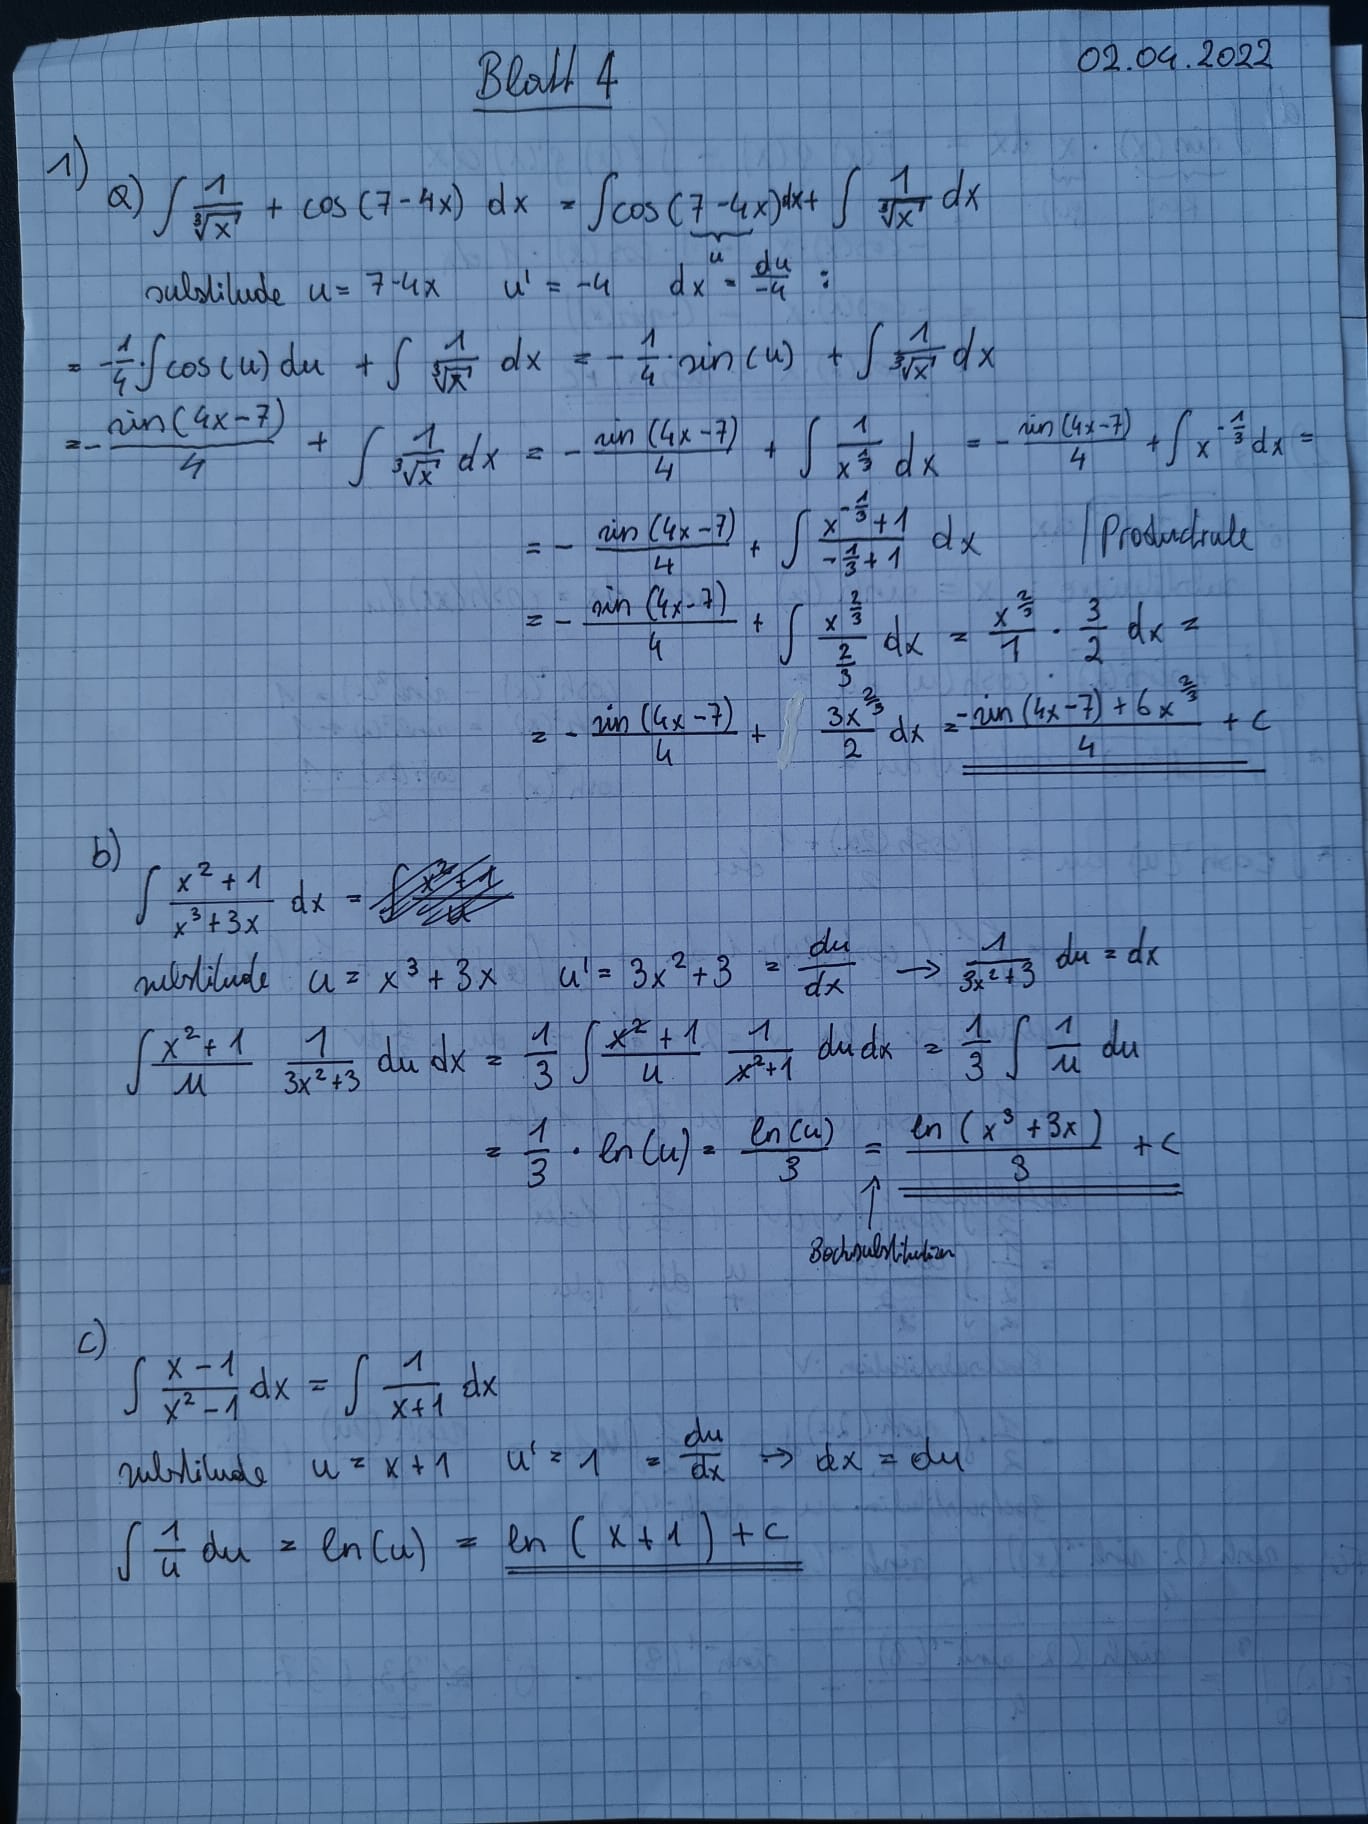 Blatt 4
02.04.2022
1)
a) ∫ 1/∛x + cos(7-4x) dx = ∫cos(7-4x)dx + ∫ 1/∛x dx
u
substitude u = 7-4x u' = -4 dx = du/-4 :
= -1/4 · ∫cos(u) du + ∫ 1/∛x dx = -1/4 · sin(u) + ∫ 1/∛x dx
= - sin(4x-7)/4 + ∫ 1/∛x dx = - sin(4x-7)/4 + ∫ 1/x^(1/3) dx = - sin(4x-7)/4 + ∫ x^(-1/3) dx =
= - sin(4x-7)/4 + ∫ (x^(-1/3) + 1)/(-1/3 + 1) dx | Productrule
= - sin(4x-7)/4 + ∫ x^(2/3)/(2/3) dx = x^(2/3)/1 · 3/2 dx =
= - sin(4x-7)/4 + 3x^(2/3)/2 dx = (-sin(4x-7) + 6x^(2/3))/4 + c
b)
∫ (x² + 1)/(x³+3x) dx = ∫ (x²+1)/u
substitude u = x³ + 3x u' = 3x² + 3 = du/dx → 1/(3x²+3) du = dx
∫ (x² + 1)/u 1/(3x²+3) du dx = 1/3 ∫ (x² + 1)/u 1/(x²+1) du dx = 1/3 ∫ 1/u du
= 1/3 · ln(u) = ln(u)/3 = ln(x³ + 3x)/3 + c
↑
Backsubstitution
c)
∫ (x-1)/(x²-1) dx = ∫ 1/(x+1) dx
substitude u = x+1 u' = 1 = du/dx → dx = du
∫ 1/u du = ln(u) = ln(x+1) + c